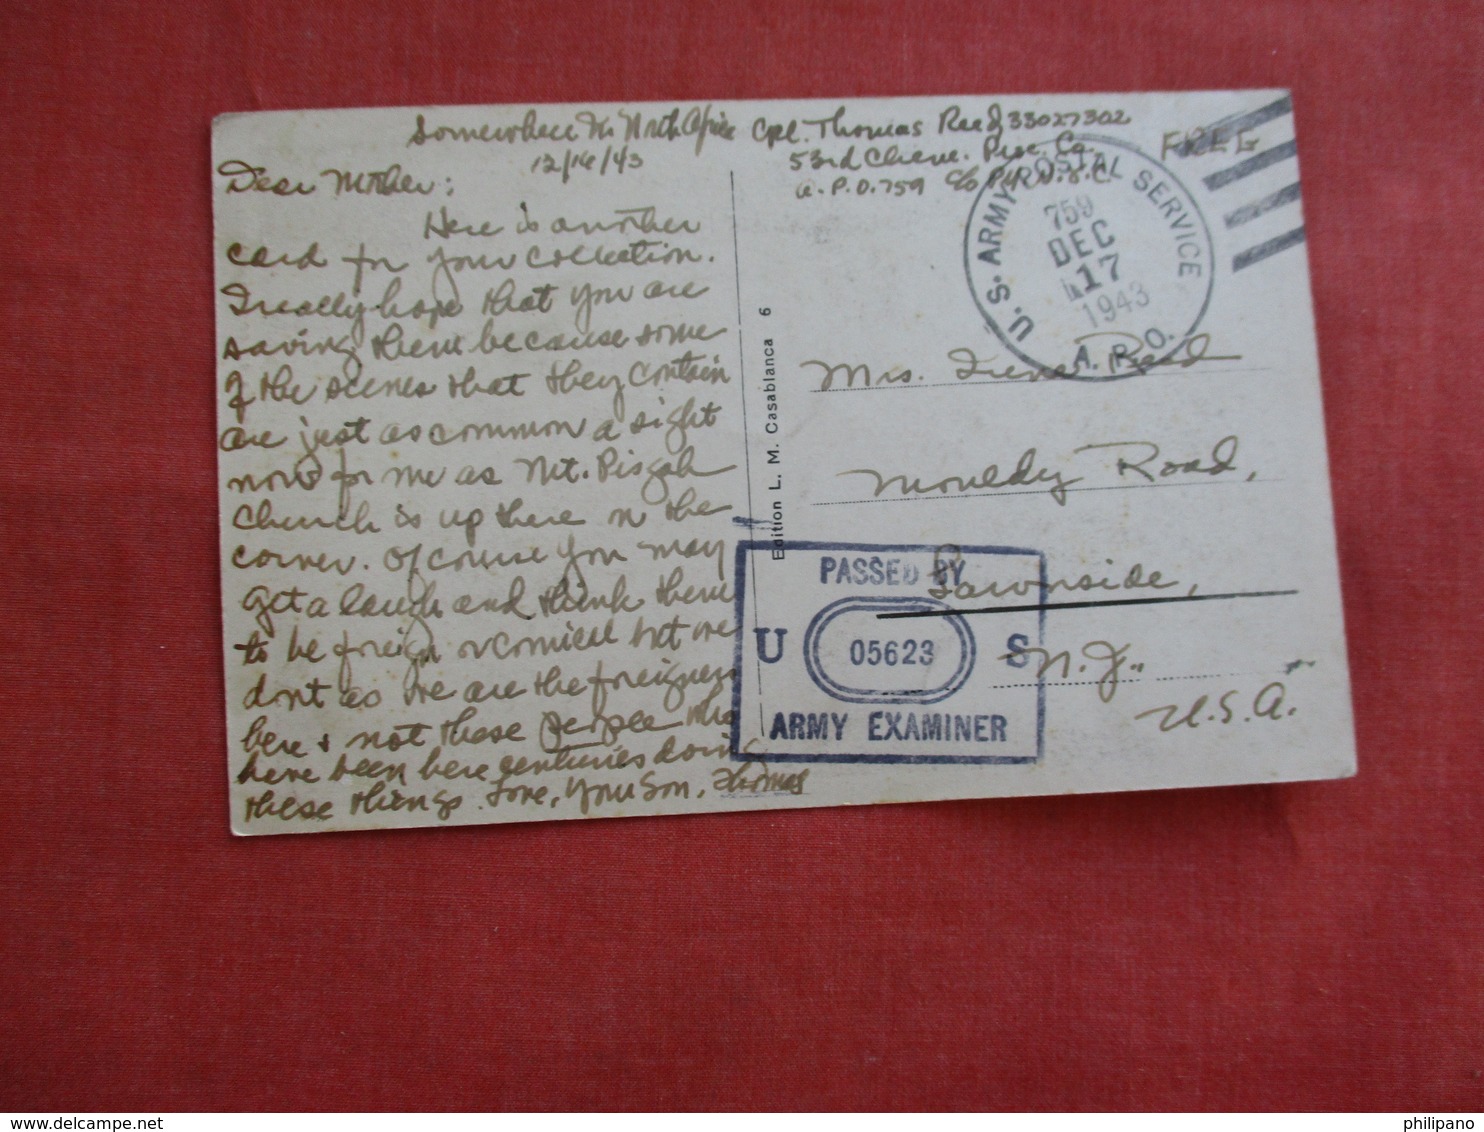 Somewhere In North Africa
12/16/43
Dear Mother:
Here is another
card for your collection.
I really hope that you are
saving them because some
of the scenes that they contain
are just as common a sight
now for me as Mt. Pisgah
Church is up there on the
corner. Of course you may
get a laugh and think them
to be foreign or comical but we
don't as we are the foreigners
here & not these people who
have been here centuries doing
these things. Love, Your Son, Thomas
Cpl. Thomas Reed 33027302
53rd Chem. Proc. Co.
A.P.O. 759 c/o P.M. N.Y.C.
FREE
U.S. ARMY POSTAL SERVICE
759
DEC
17
1943
A.P.O.
Mrs. Reed
Mouldy Road,
Lawnside,
N.J.
U.S.A.
Edition L. M. Casablanca 6
PASSED BY
U 05623 S
ARMY EXAMINER
philipano
https://www.delcampe.net